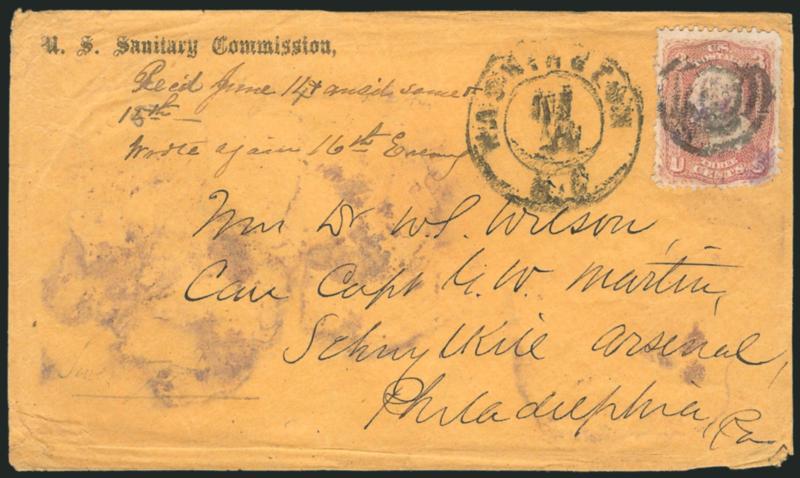 U. S. Sanitary Commission,
Rec'd June 14th and same
15th
Wrote again 16th Evening
WASHINGTON
D.C.
U.S.
POSTAGE
THREE
CENTS
Mrs Dr W.S. Wilson,
Care Capt G. W. Martin,
Schuylkill Arsenal,
Philadelphia, Pa